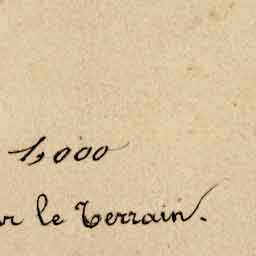 1,000
r le Terrain.